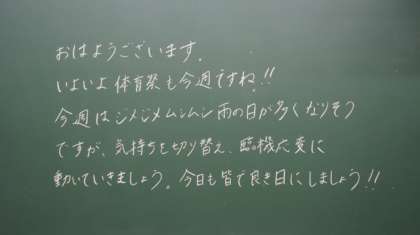 おはようございます。
いよいよ体育祭も今週ですね!!
今週はジメジメムシムシ雨の日が多くなりそう
ですが、気持ちを切り替え、臨機応変に
動いていきましょう。今日も皆で良き日にしましょう!!